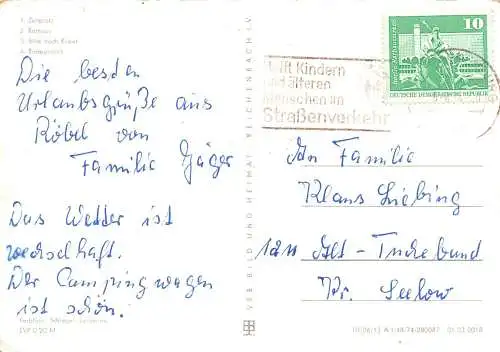 1. Zeltplatz
2. Rathaus
3. Blick nach Röbel
Die besten
Urlaubsgrüße aus
Röbel von
Familie Jäger
Das Wetter ist
wechselhaft.
Der Campingwagen
ist schön.
EVP 0,20 M
VEB BILD UND HEIMAT REICHENBACH I. V.
Helft Kindern
und älteren
Menschen im
Straßenverkehr
10
DEUTSCHE DEMOKRATISCHE REPUBLIK
An Familie
Klaus Liebing
1211 Alt-Tucheband
Kr. Seelow
01 03 0018